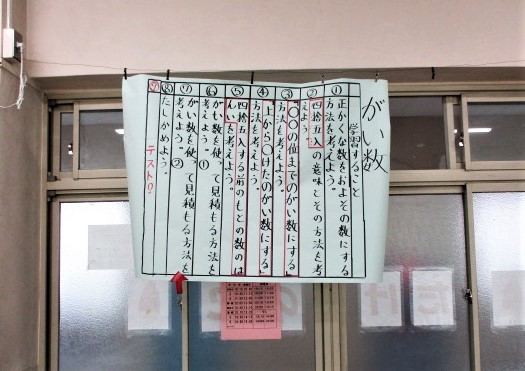 がい数
学習すること
①正かくな数をおよその数にする
方法を考えよう。
②四捨五入の意味とその方法を考
えよう。
③〇〇の位までのがい数にする
方法を考えよう。
④上から〇けたのがい数にする
方法を考えよう。
⑤四捨五入する前のもとの数のは
んいを考えよう。
⑥がい数を使って見積もる方法を
考えよう。①
⑦がい数を使って見積もる方法を
考えよう。②
⑧たしかめよう。
⑨テスト!